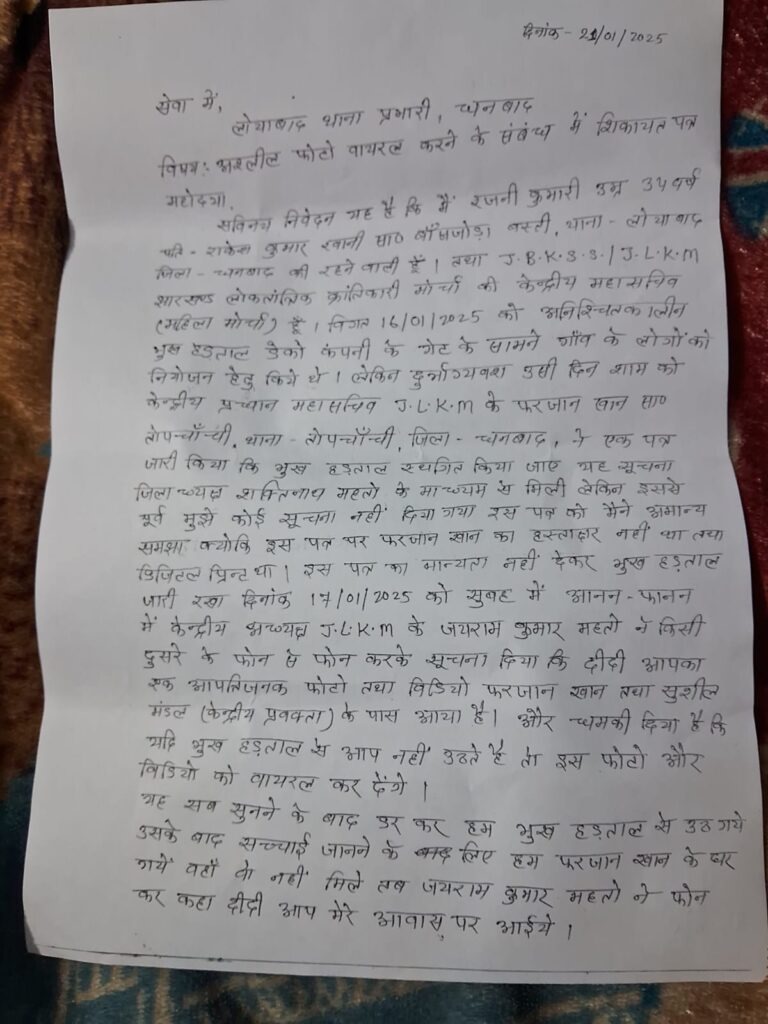 दिनांक - 21/01/2025
सेवा में,
लोयाबाद थाना प्रभारी, धनबाद
विषय: अश्लील फोटो वायरल करने के संबंध में शिकायत पत्र
महोदया,
सविनय निवेदन यह है कि मैं रजनी कुमारी उम्र 34 वर्ष
पति - राकेश कुमार स्वानी सा० बाँसजोड़ा बस्ती, थाना - लोयाबाद
जिला - धनबाद की रहने वाली हूँ। तथा J.B.K.S.S./J.L.K.M
झारखण्ड लोकतांत्रिक क्रांतिकारी मोर्चा की केन्द्रीय महासचिव
(महिला मोर्चा) हूँ। विगत 16/01/2025 को अनिश्चितकालीन
भुख हड़ताल डेको कंपनी के गेट के सामने गाँव के लोगों को
नियोजन हेतु किये थे। लेकिन दुर्भाग्यवश उसी दिन शाम को
केन्द्रीय प्रधान महासचिव J.L.K.M के फरजान खान सा०
तोपचाँची, थाना - तोपचाँची, जिला - धनबाद, ने एक पत्र
जारी किया कि भुख हड़ताल स्थगित किया जाए यह सूचना
जिलाध्यक्ष शक्तिनाथ महतो के माध्यम से मिली लेकिन इससे
पूर्व मुझे कोई सूचना नहीं दिया गया इस पत्र को मैने अमान्य
समझा क्योकि इस पत्र पर फरजान खान का हस्ताक्षर नहीं था तथा
डिजिटल प्रिन्ट था। इस पत्र का मान्यता नहीं देकर भुख हड़ताल
जारी रखा दिनांक 17/01/2025 को सुबह में आनन-फानन
में केन्द्रीय अध्यक्ष J.L.K.M के जयराम कुमार महतो ने किसी
दुसरे के फोन से फोन करके सूचना दिया कि दीदी आपका
एक आपतिजनक फोटो तथा विडियो फरजान खान तथा सुशील
मंडल (केन्द्रीय प्रवक्ता) के पास आया है। और धमकी दिया है कि
यदि भुख हड़ताल से आप नहीं उठते है तो इस फोटो और
विडियो को वायरल कर देंगे।
यह सब सुनने के बाद डर कर हम भुख हड़ताल से उठ गये
उसके बाद सच्चाई जानने के लिए हम फरजान खान के घर
गये वहाँ वो नहीं मिले तब जयराम कुमार महतो ने फोन
कर कहा दीदी आप मेरे आवास पर आईये।